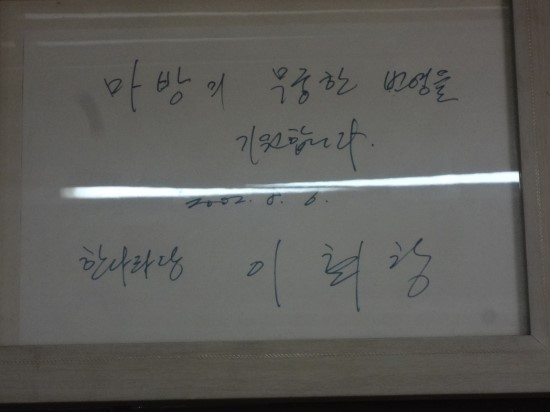 마방의 무궁한 번영을
기원합니다.
2002. 8. 6.
한나라당 이회창